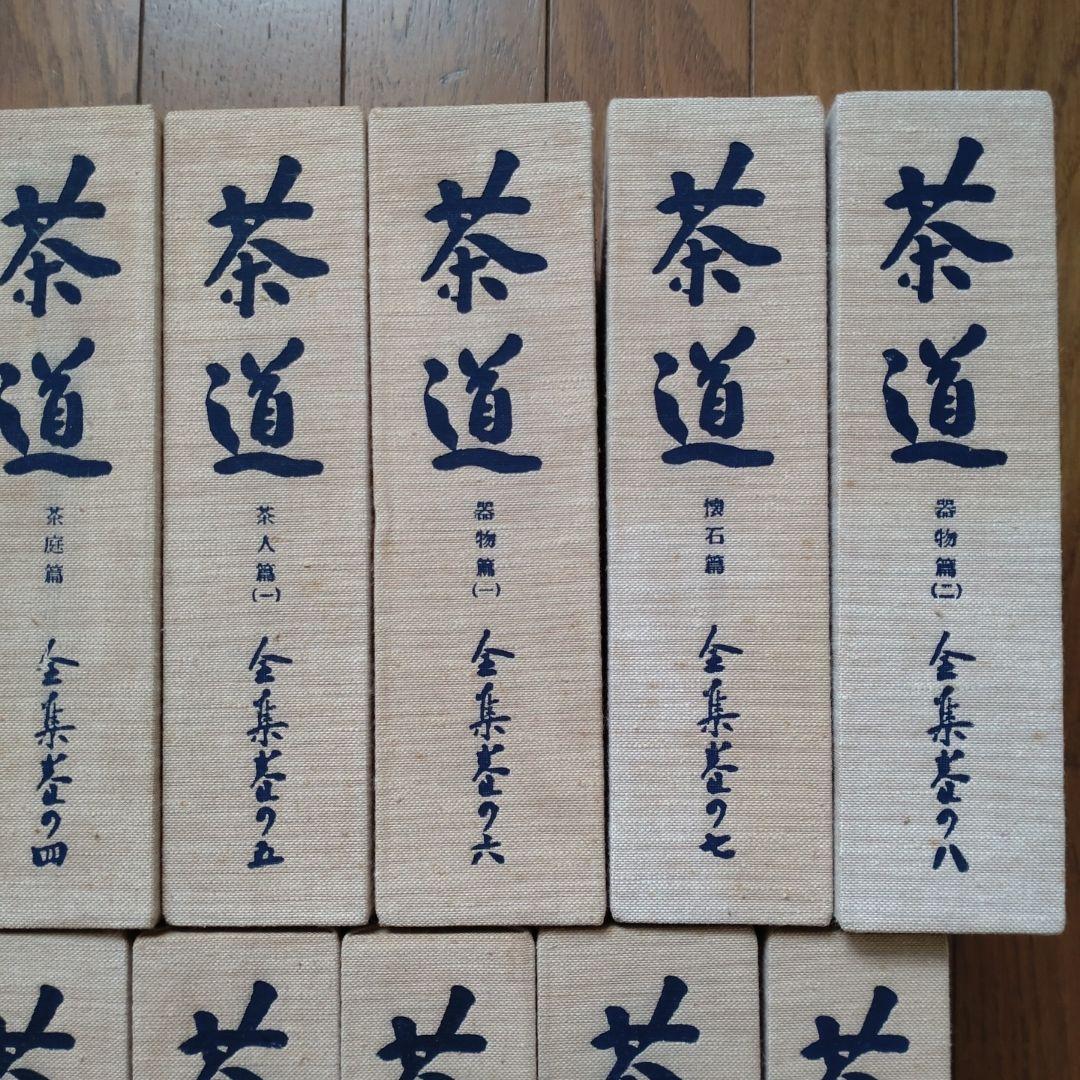 茶道
茶庭篇
全集巻の四
茶道
茶人篇(一)
全集巻の五
茶道
器物篇(一)
全集巻の六
茶道
懐石篇
全集巻の七
茶道
器物篇(二)
全集巻の八
茶
茶
茶
茶
茶